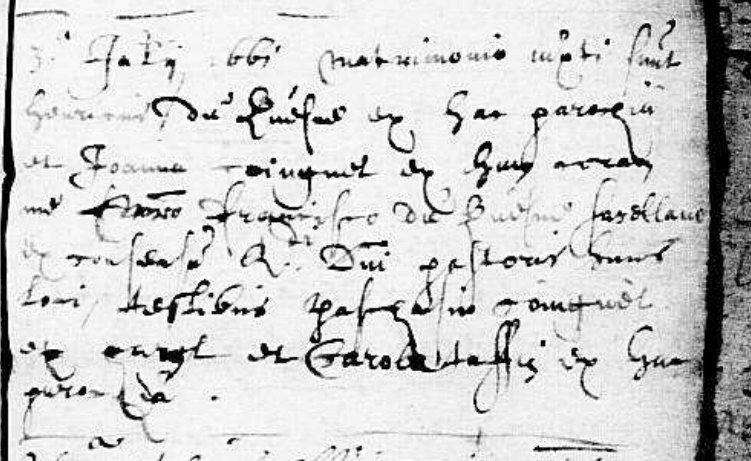 matrimonio iuncti sunt
henricus du quesne ex hac parochia
et Joanna coinguet ex huy coram
me francisco du quesne sacellano
ex consensu R. di Dni pastoris huius
loci, testibus paschasio coinguet
ex et Carolo taffin ex hac
parochia.